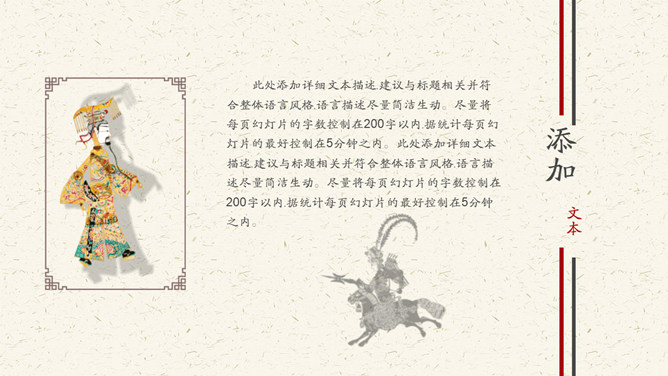 此处添加详细文本描述,建议与标题相关并符
合整体语言风格,语言描述尽量简洁生动。尽量将
每页幻灯片的字数控制在200字以内,据统计每页幻
灯片的最好控制在5分钟之内。此处添加详细文本
描述,建议与标题相关并符合整体语言风格,语言描
述尽量简洁生动。尽量将每页幻灯片的字数控制在
200字以内,据统计每页幻灯片的最好控制在5分钟
之内。
添加
文本